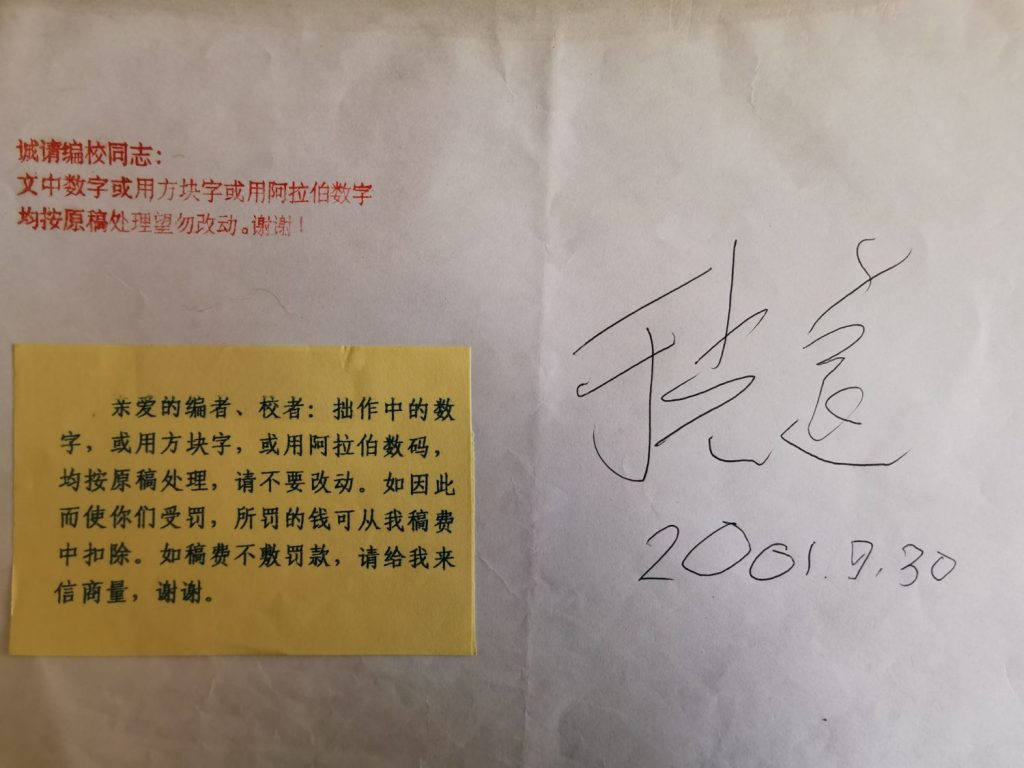 诚请编校同志：
文中数字或用方块字或用阿拉伯数字
均按原稿处理望勿改动。谢谢！
亲爱的编者、校者：拙作中的数
字，或用方块字，或用阿拉伯数码，
均按原稿处理，请不要改动。如因此
而使你们受罚，所罚的钱可从我稿费
中扣除。如稿费不敷罚款，请给我来
信商量，谢谢。
2001.9.30